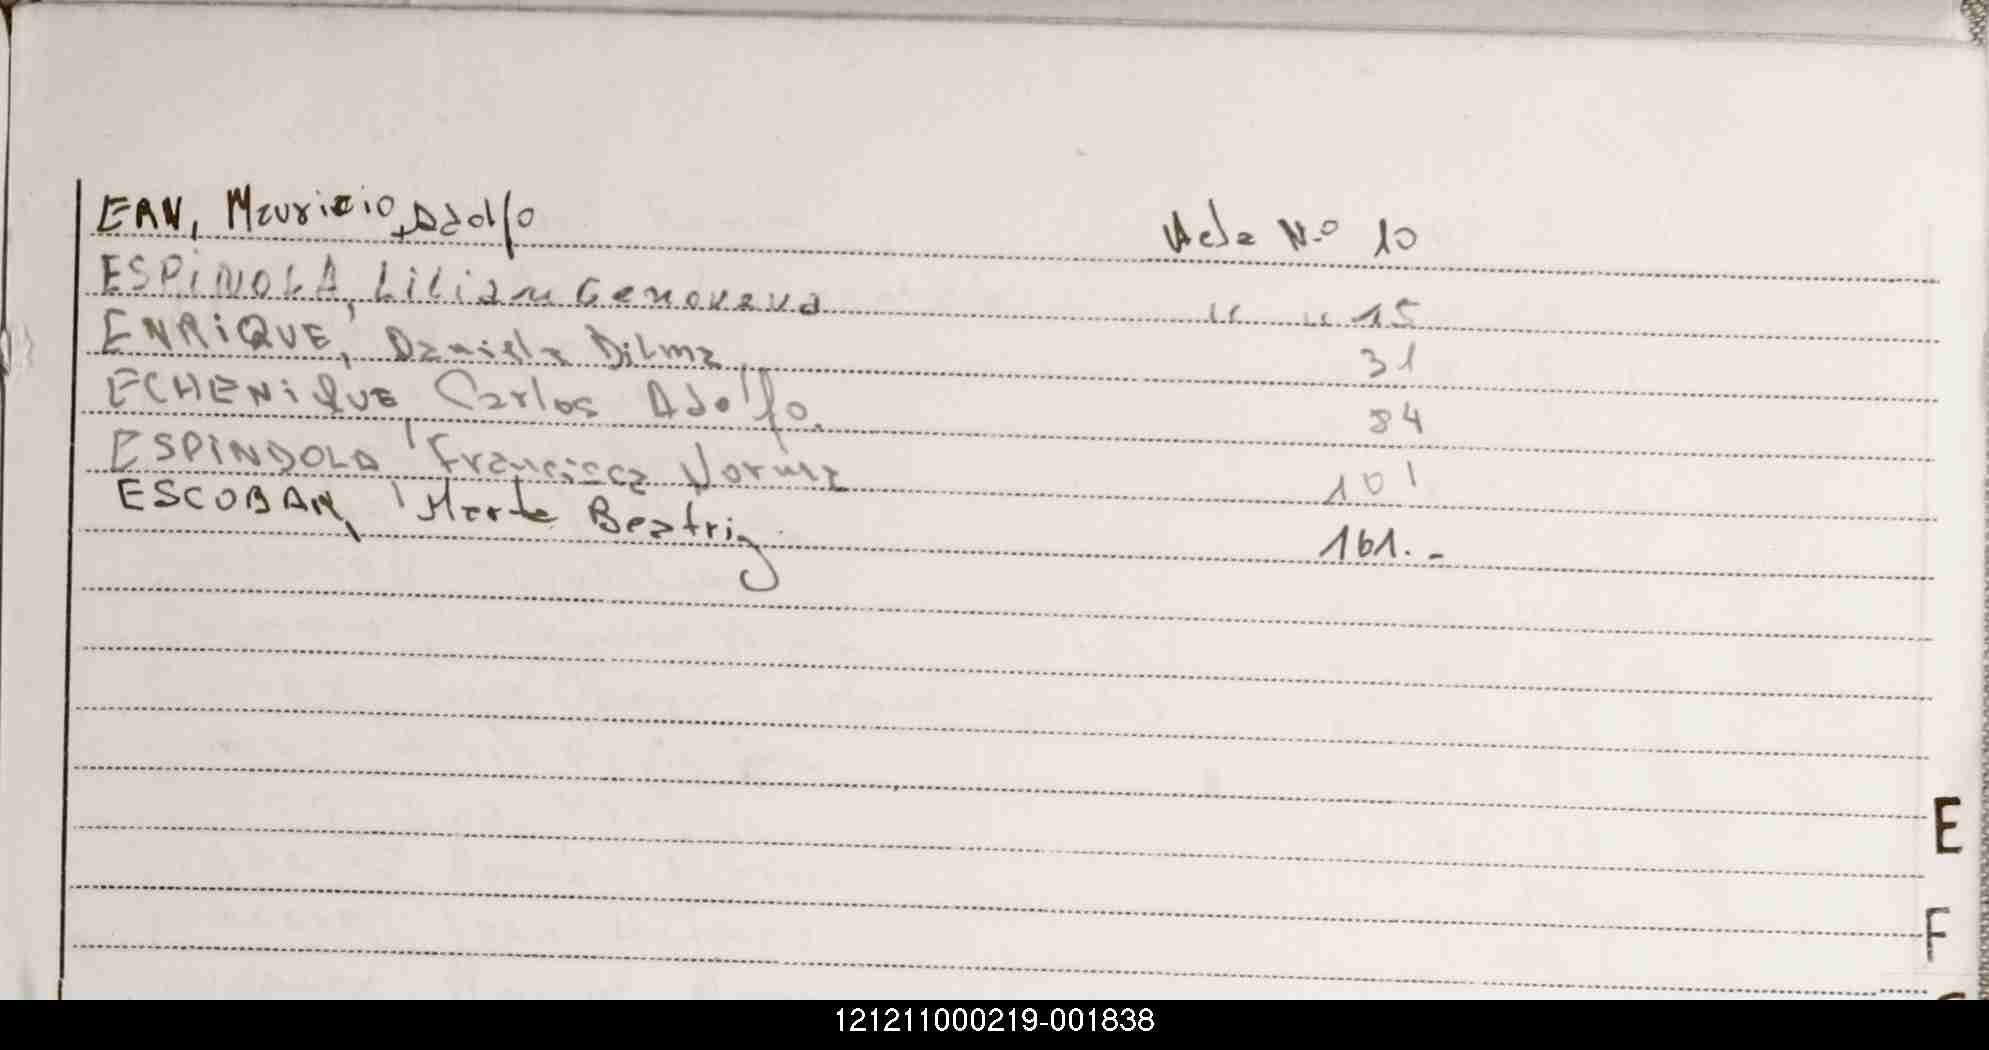 EAN, Mauricio Adolfo Acta N.o 10
ESPINOLA, Lilian Genoveva " " 15
ENRIQUE, Daniela Dilma 31
ECHENIQUE, Carlos Adolfo. 84
ESPINDOLA, Francisca Norma 101
ESCOBAR, Marta Beatriz 161.-
E
F
121211000219-001838